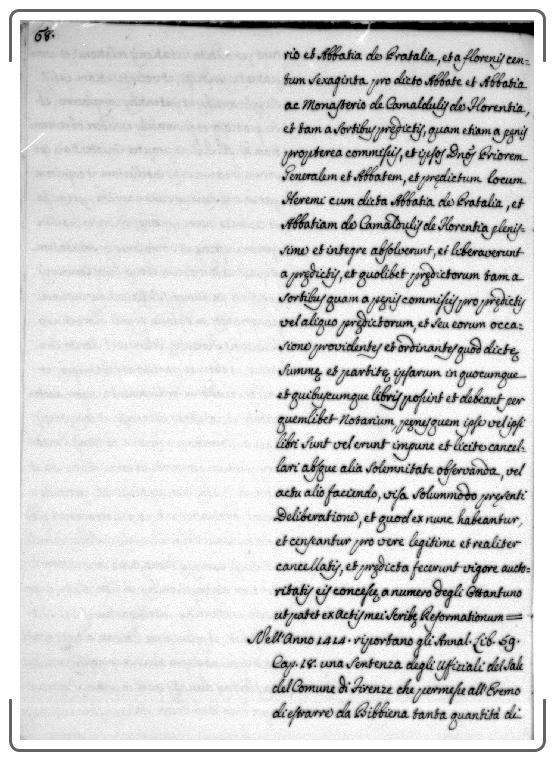 68.
rio et Abbatia de Pratalia, et a florenis cen=
tum sexaginta pro dicto Abbate et Abbatia
ac Monasterio de Camaldulis de Florentia,
et tam a sortibus prędictis, quam etiam a pęnis
propterea commissis, et ipsos Dnos Priorem
Generalem et Abbatem, et prędictum locum
Heremi cum dicta Abbatia de Pratalia, et
Abbatiam de Camaldulis de Florentia plenis-
sime et integre absolverunt, et liberaverunt
a prędictis, et quolibet prędictorum tam a
sortibus quam a pęnis commissis pro prędictis
vel aliquo prędictorum, et seu eorum occa-
sione providentes et ordinantes quod dictę
summę et partitę ipsarum in quocumque
et quibuscumque libris possint et debeant per
quemlibet Notarium pęnes quem ipse vel ipsi
libri sunt vel erunt impune et licite cancel-
lari absque alia solemnitate observanda, vel
actu alio faciendo, visa solummodo pręsenti
Deliberatione, et quod ex nunc habeantur,
et censeantur pro vere legitime et realiter
cancellatis, et prędicta fecerunt vigore aucto-
ritatis eis concessę a numero degli Ottantuno
ut patet ex Actis mei Scribę Reformationum =
Nell'Anno 1414. riportano gli Annal. Lib. 59.
Cap. 18. una Sentenza degli Uffiziali del Sale
del Comune di Firenze che permesse all'Eremo
di estrarre da Bibbiena tanta quantità di